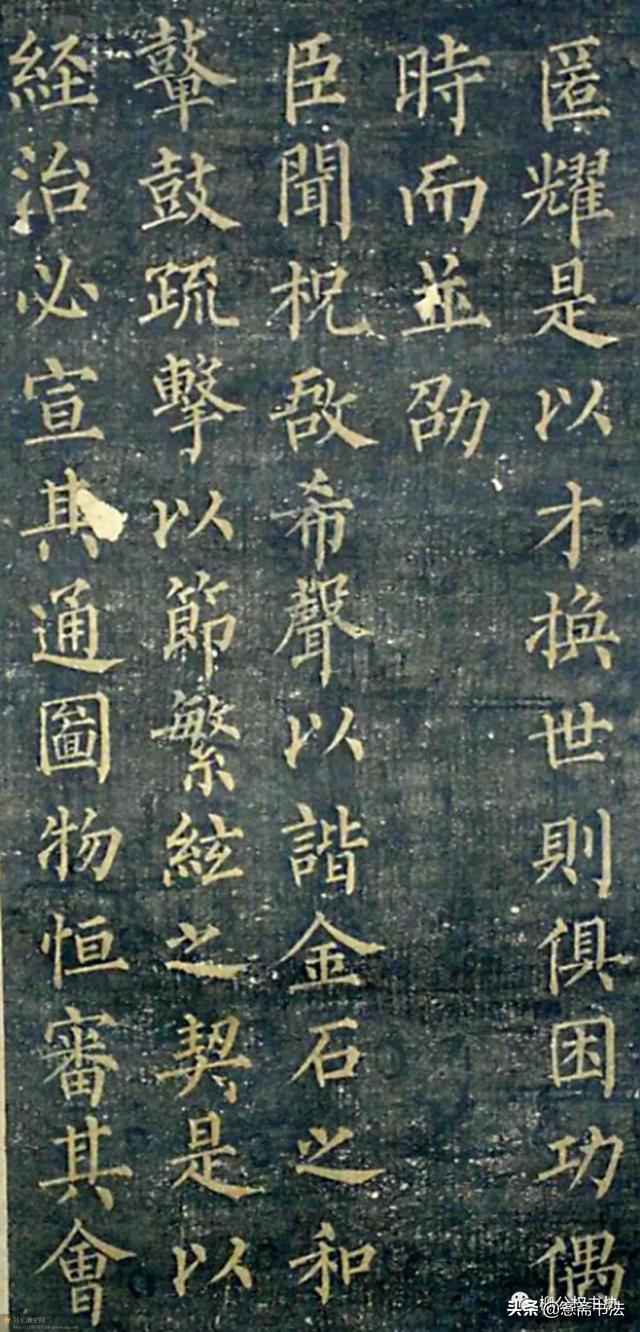 匿耀是以才換世則俱困功偶
時而並劭
臣聞柷敔希聲以諧金石之和
鼙鼓疏擊以節繁絃之契是以
経治必宣其通圖物恒審其會
头条 @悫斋书法